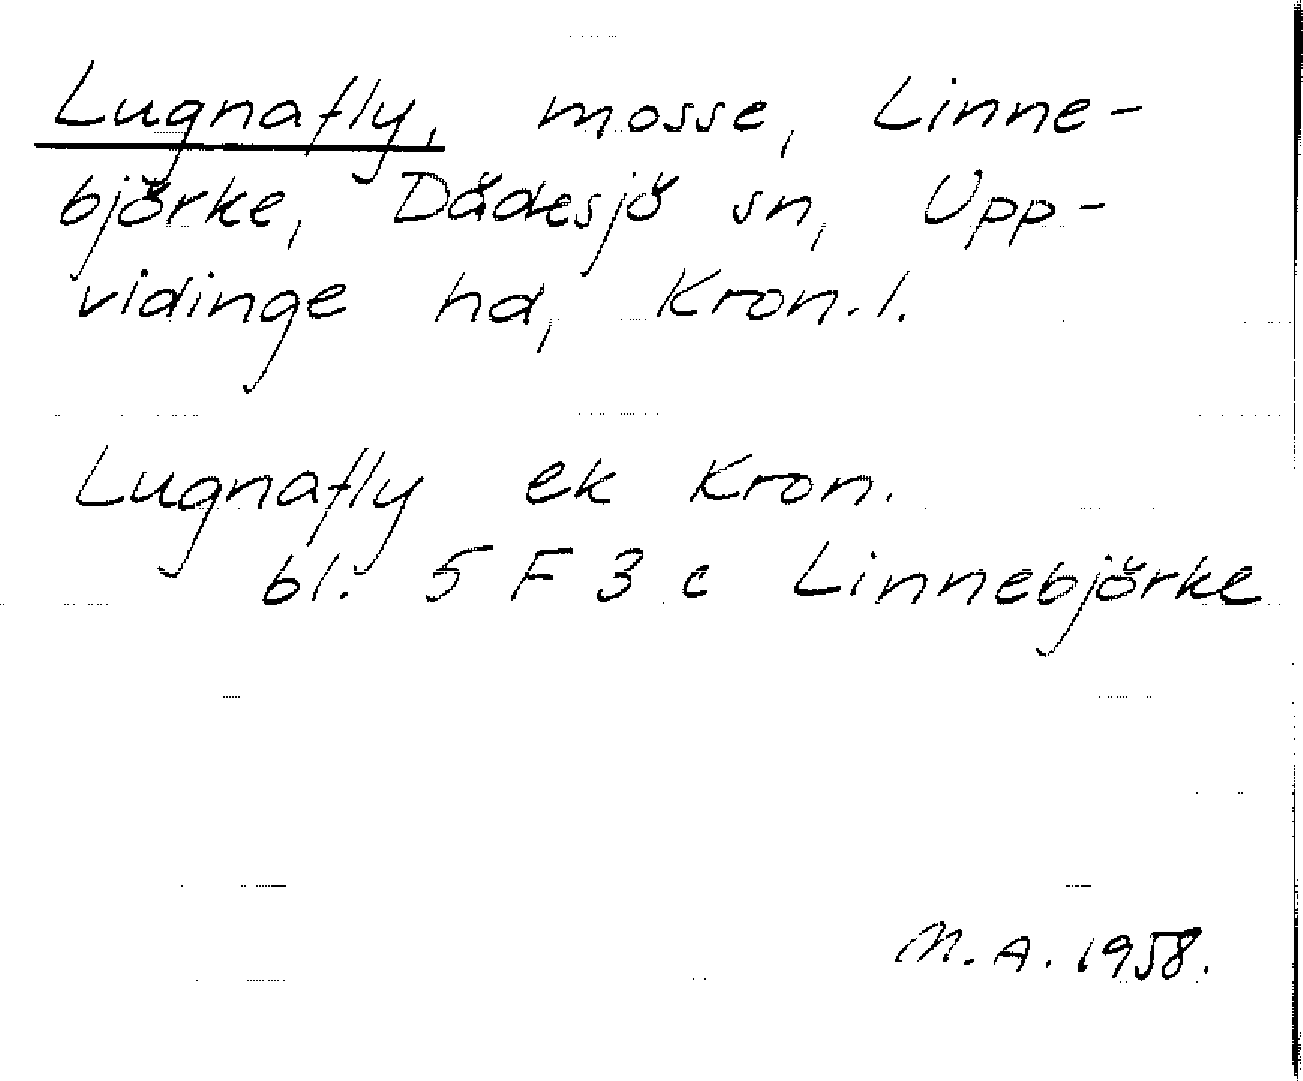 Lugnafly, mosse, Linne-
björke, Dädesjö sn, Upp-
vidinge hd, Kron.l.
Lugnafly ek Kron.
bl. 5 F 3 c Linnebjörke
M.A. 1958.